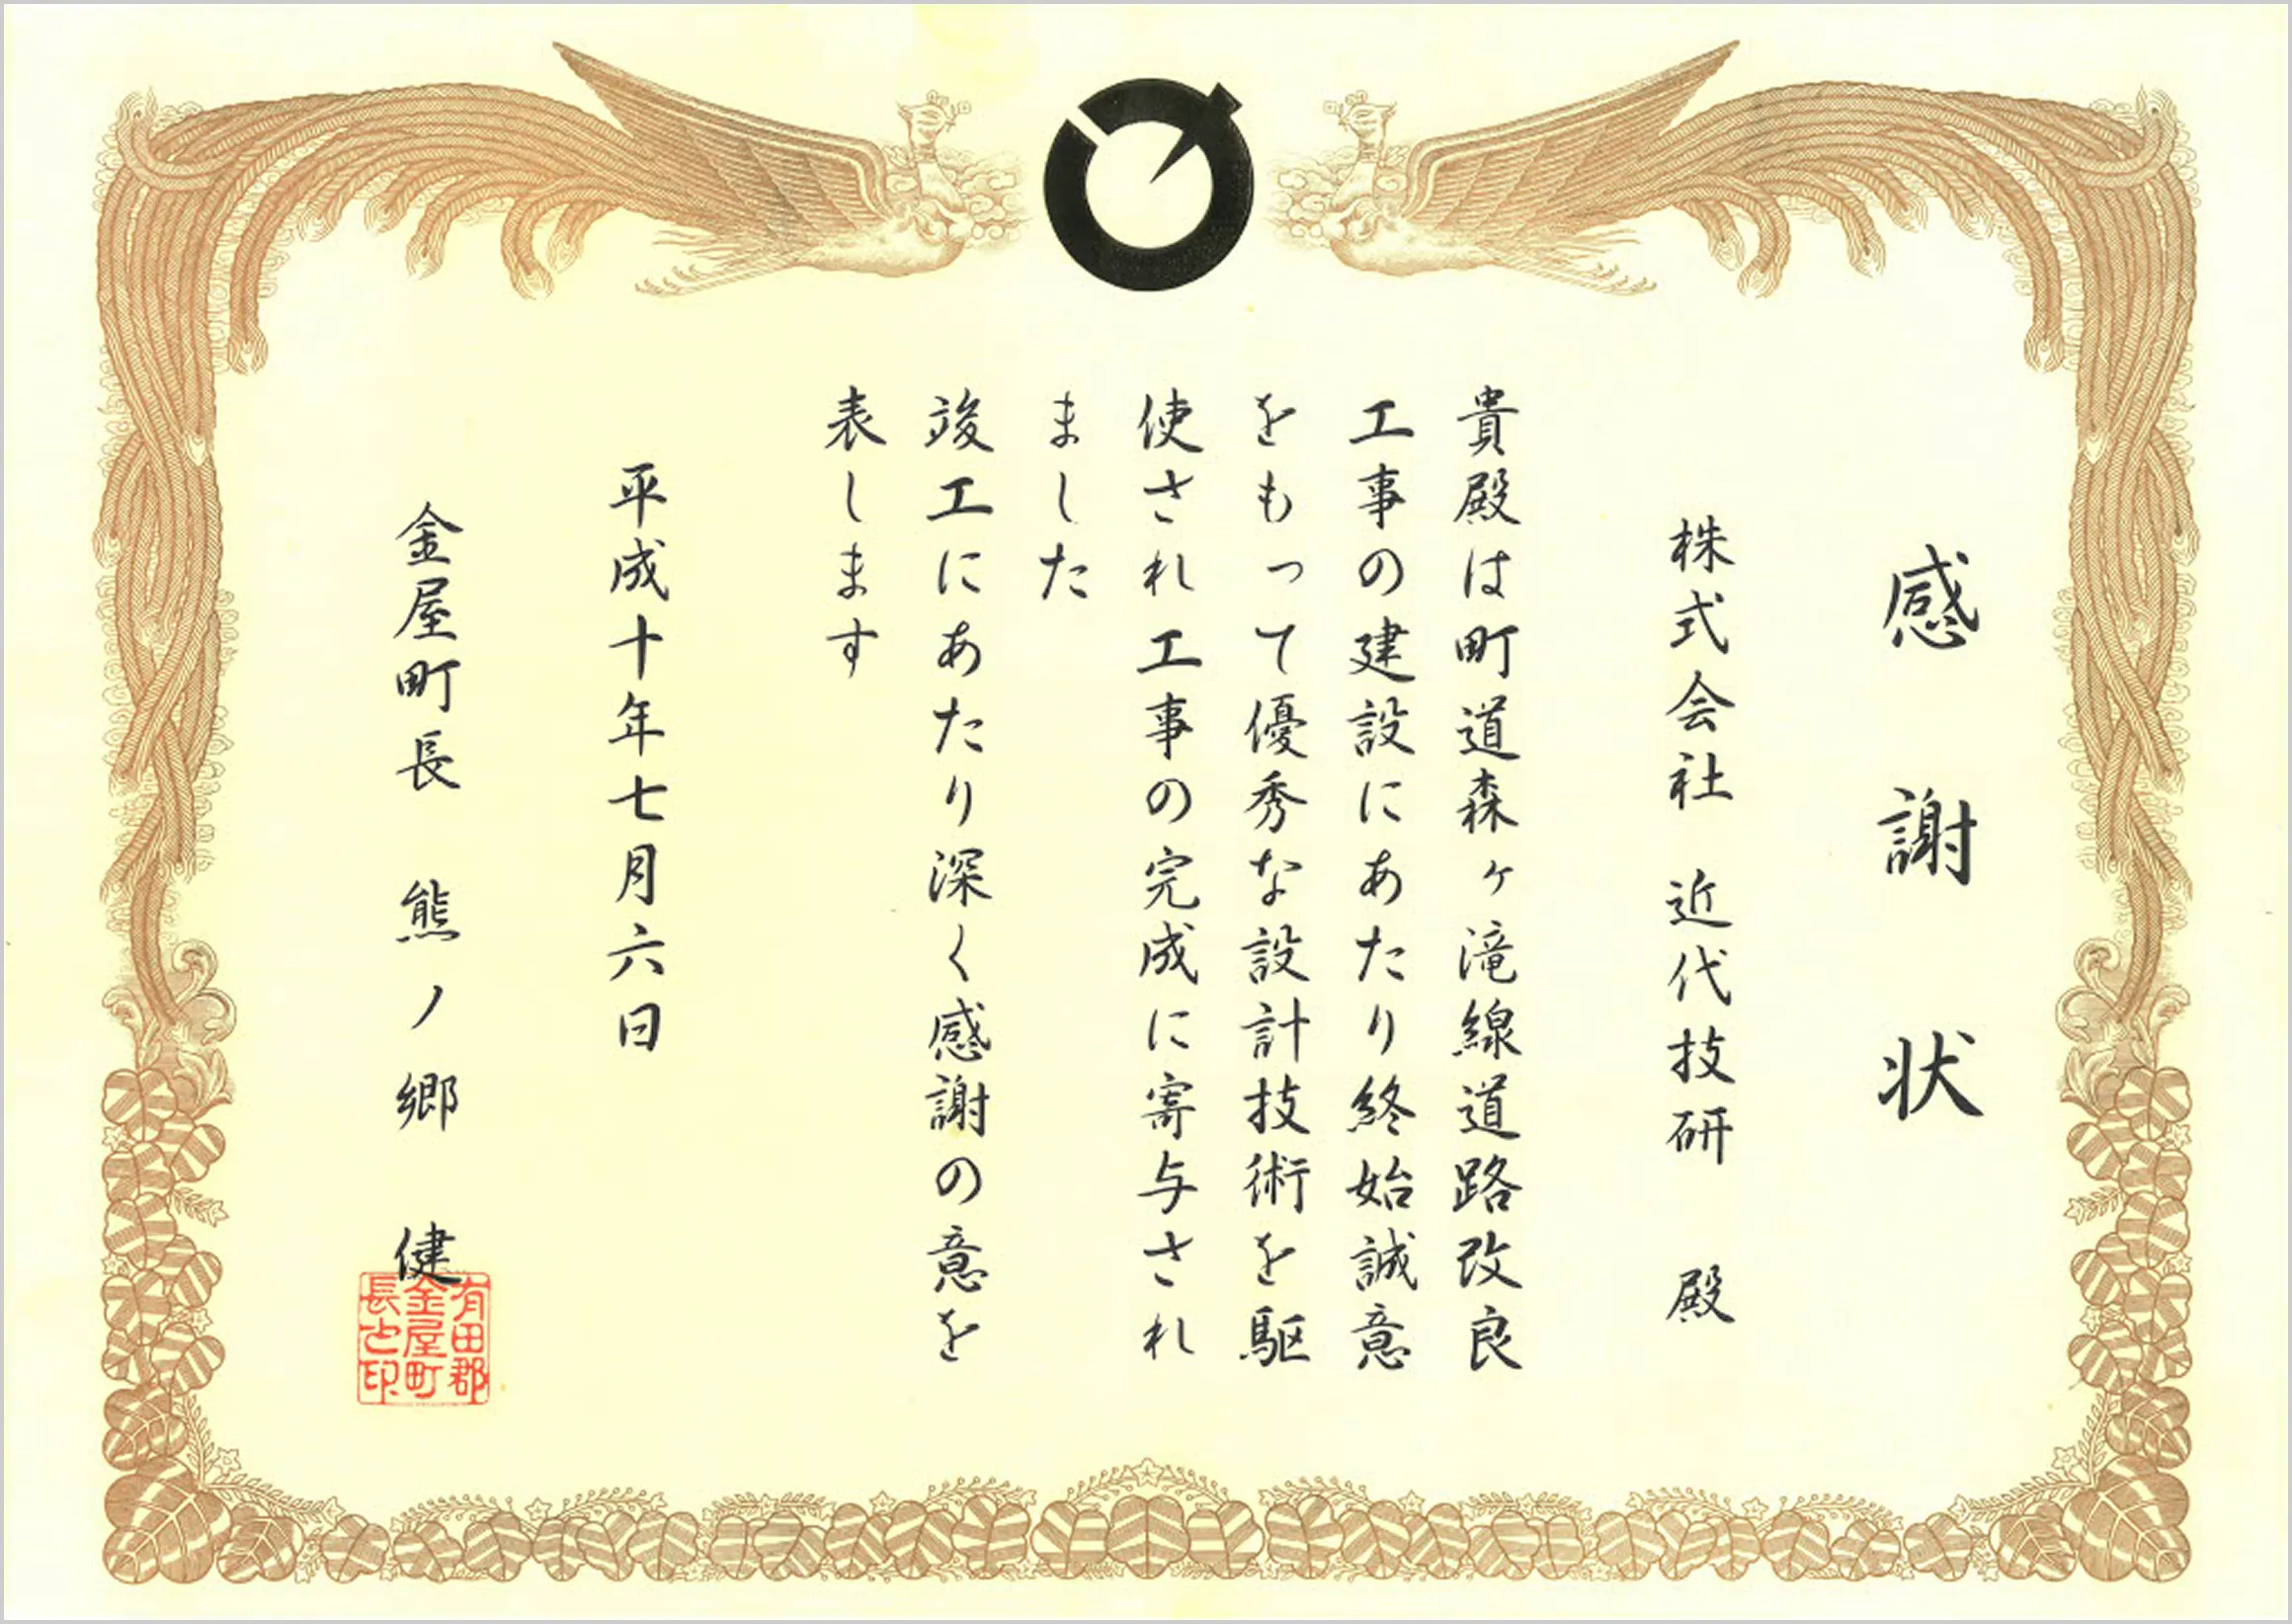 感謝状
株式会社 近代技研 殿
貴殿は町道森ヶ滝線道路改良
工事の建設にあたり終始誠意
をもって優秀な設計技術を駆
使され工事の完成に寄与され
ました
竣工にあたり深く感謝の意を
表します
平成十年七月六日
金屋町長 熊ノ郷 健
有田郡
金屋町
長之印